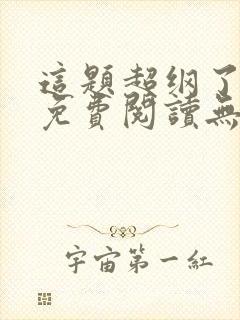 這題超纲了
免費閱讀無
宇宙第一紅